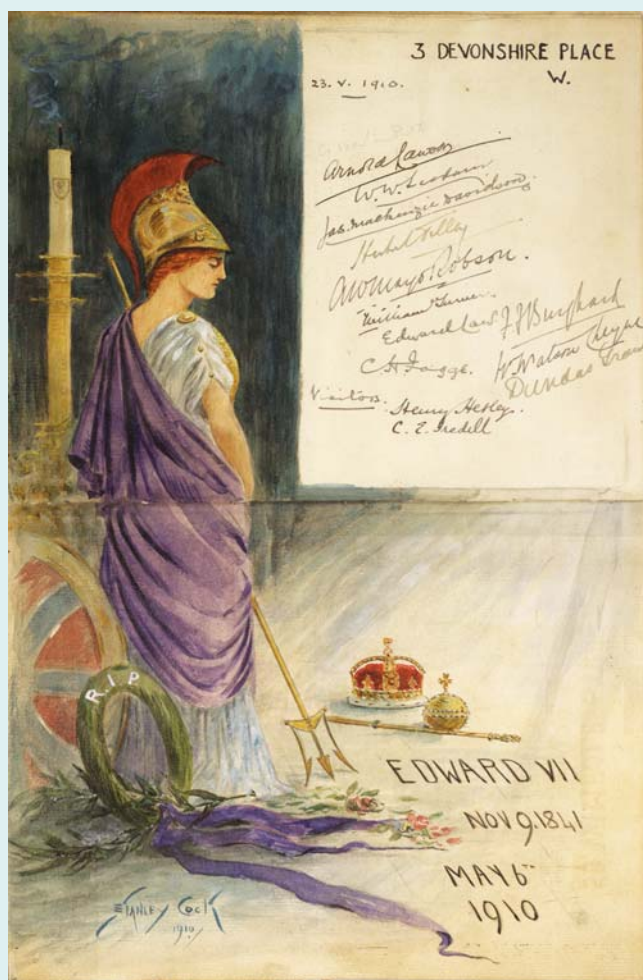 3 DEVONSHIRE PLACE
W.
23. V. 1910.
Arnold Lawson
W.W.
Jas. Mackenzie Davidson.
Herbert Tilley
A W Mayo Robson.
William Turner.
Edward Law F F Burghard
C H Fagge. W Watson Cheyne
Dundas Grant
Visitors. Henry
C. E. Iredell
R.I.P
EDWARD VII
NOV 9. 1841
MAY 6TH
1910
STANLEY COCK
1910